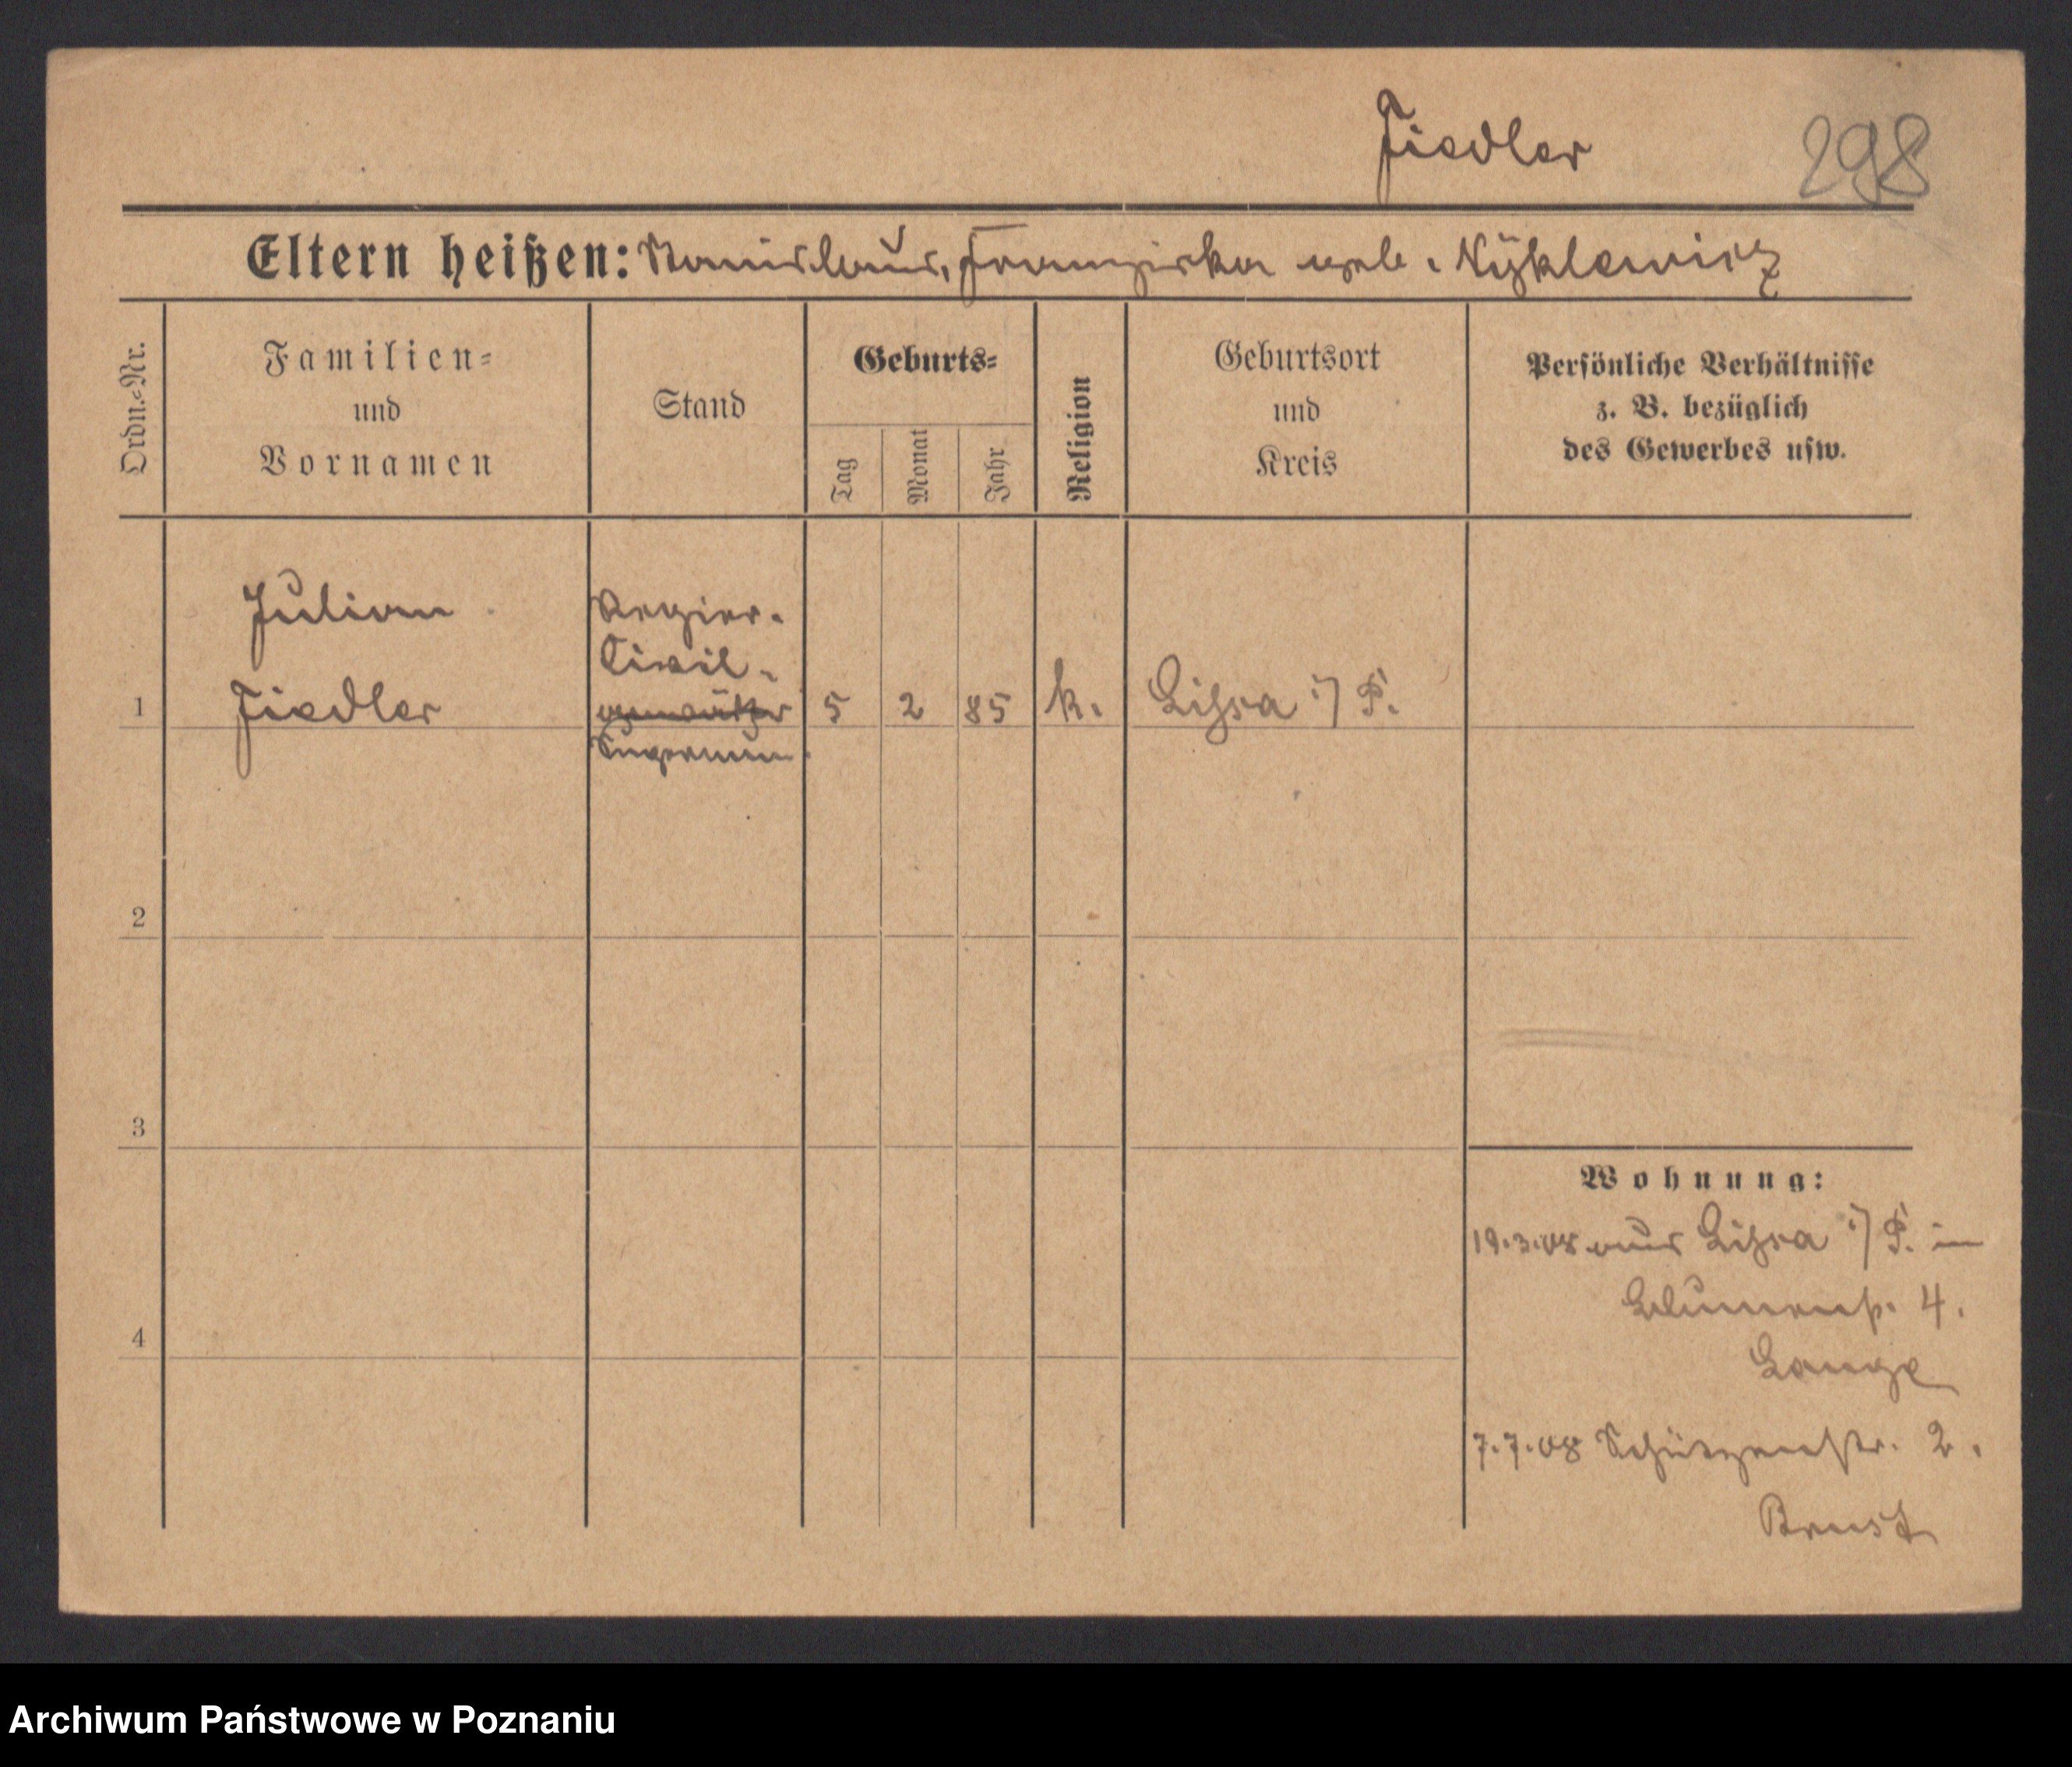 Fiedler 298
Eltern heißen: Stanislaus, Franziska geb. Nyklewicz
Ordn.-Nr.
Familien-
und
Vornamen
Stand
Geburts-
Tag
Monat
Jahr
Religion
Geburtsort
und
Kreis
Persönliche Verhältnisse
z. B. bezüglich
des Gewerbes usw.
Julian
Regier.
Civil-
1 Fiedler 5 2 85 k. Lissa i/P.
Supernum.
2
3
4
Wohnung:
19.3.08 aus Lissa i/P. in
Blumenstr. 4.
Lange
7.7.08 Schützenstr. 2.
Brust
Archiwum Państwowe w Poznaniu